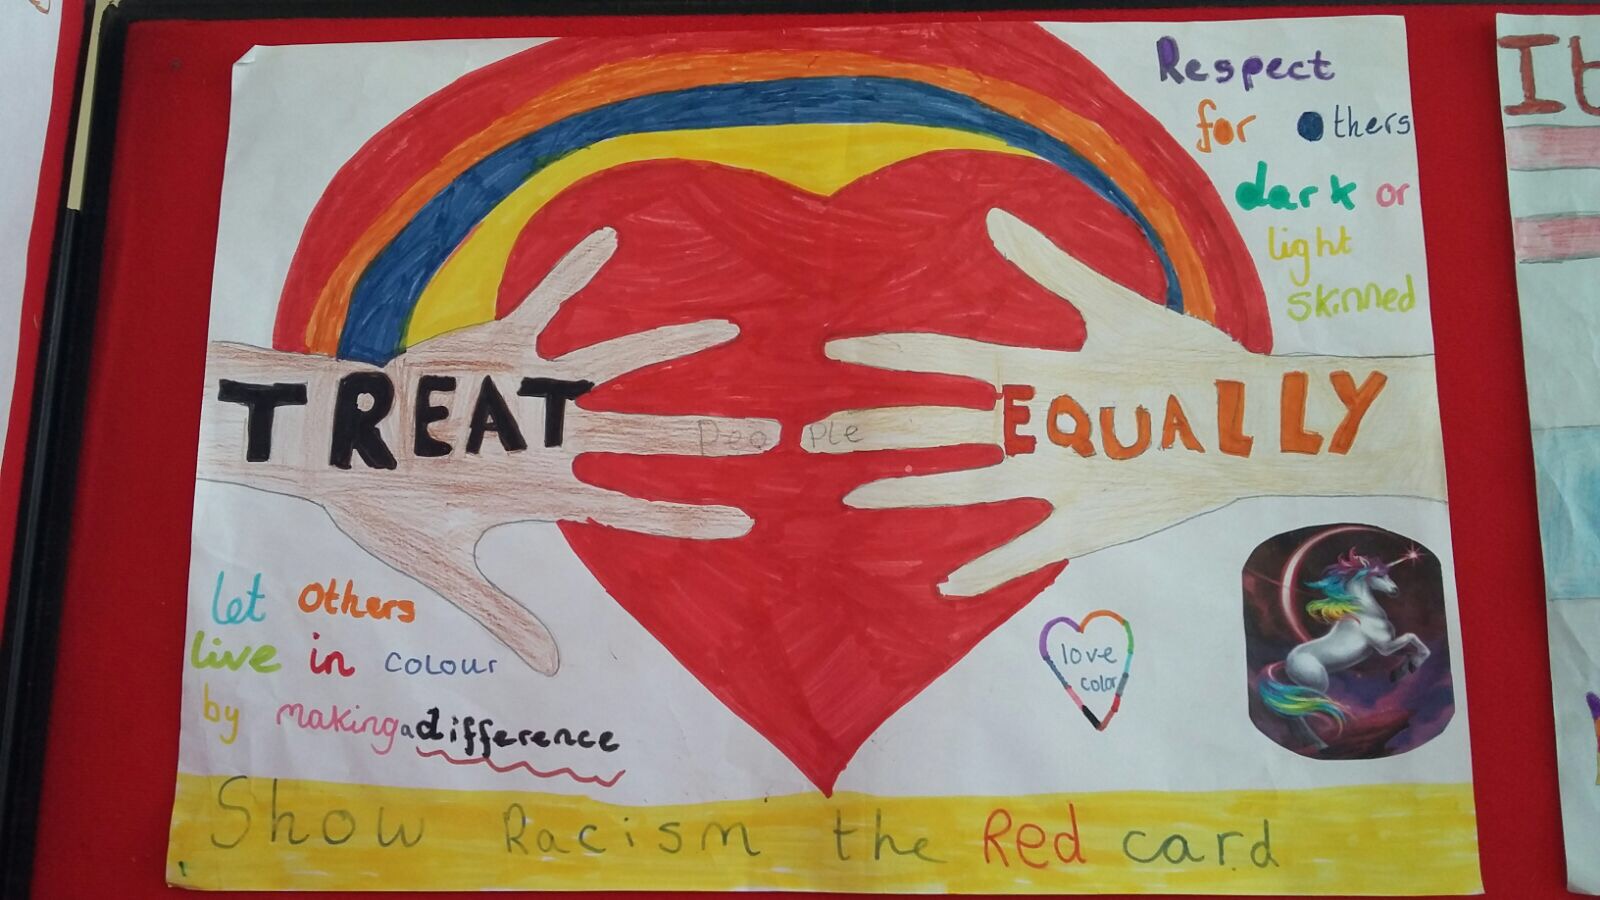 Respect
for Others
dark or
light
skinned
TREAT people EQUALLY
let others
live in colour
by making a difference
love
color
Show Racism the Red card
It